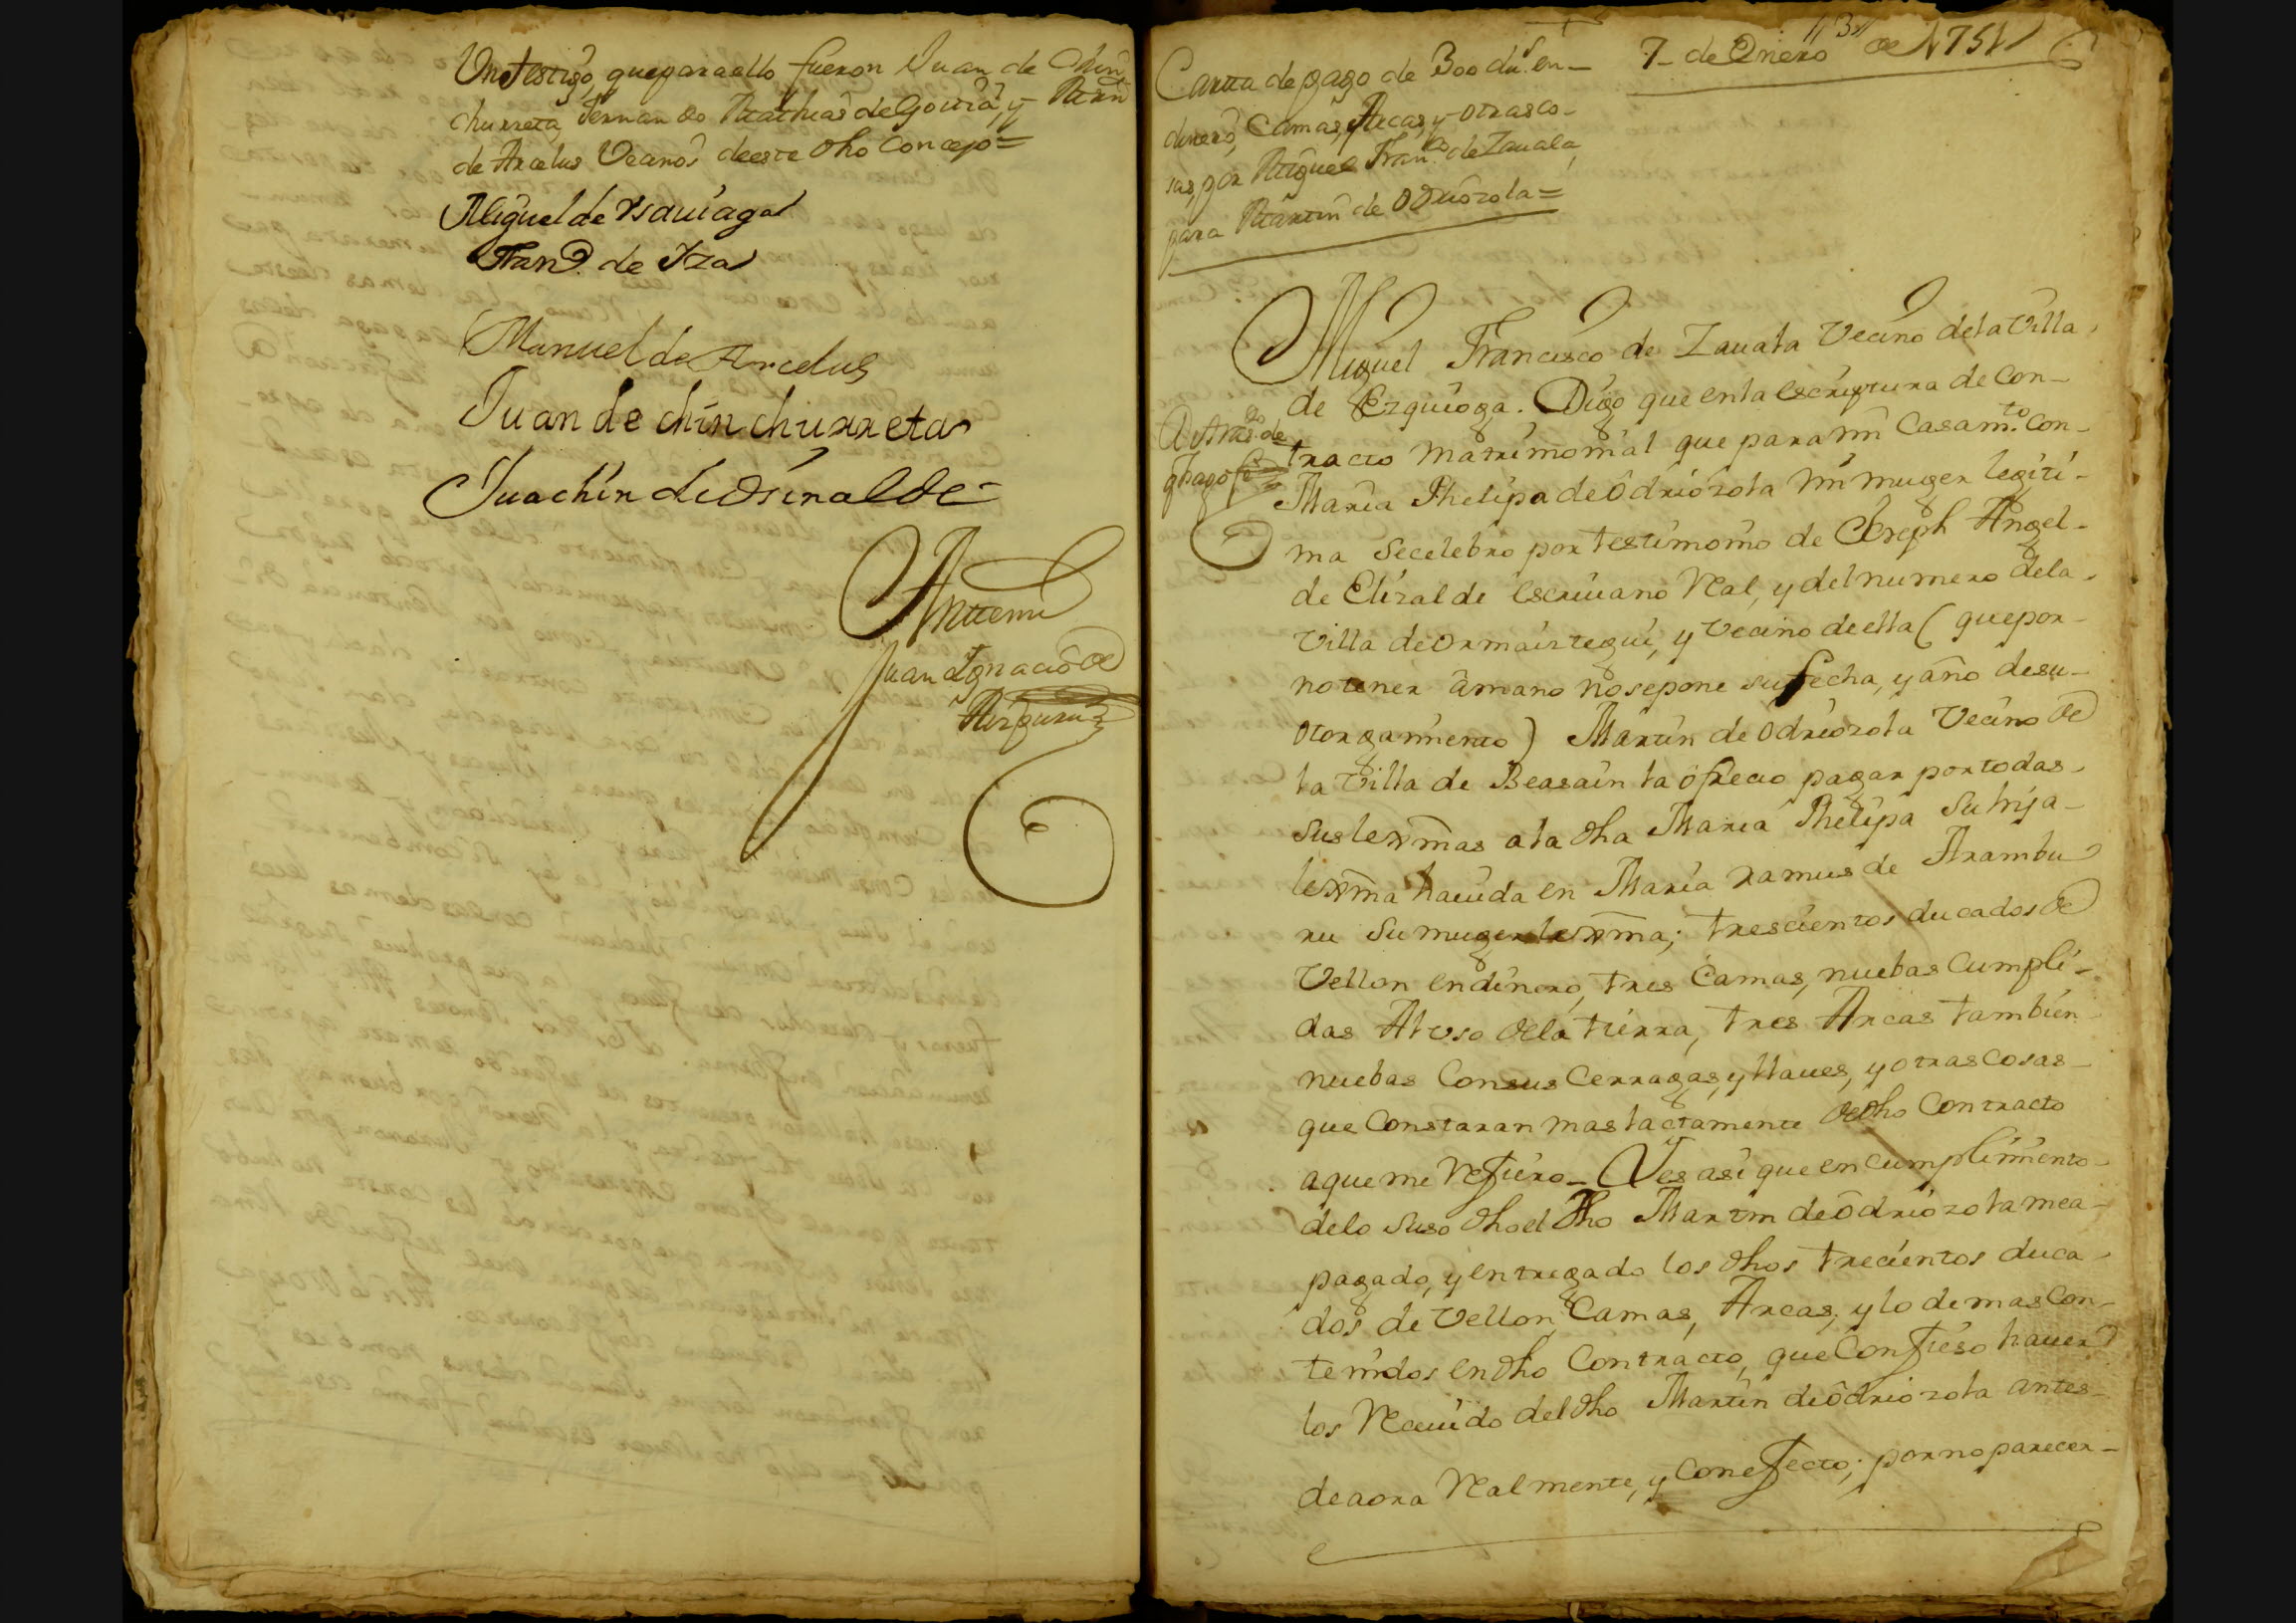 Un testigo, que para ello fueron Juan de Chin
churreta, Fernando Mathias de Goitia, y Mrn
de Arcelus Vecinos de este dho Concejo=
Miguel de Ysauiaga
Franco. de Yza
Manuel de Arcelus
Juan de chinchurreta
Juachin de Osinalde
Antemi
Juan Ignacio de
"3"
Carta de pago de 300 dus. en
dinero, Camas, Arcas, y otras co-
sas, por Miguel Franco. de Zauala,
para Martin de Odriozola=
7- de Enero de 1751
Miguel Francisco de Zauala Vecino de la Villa
de Ezquioga. Digo que en la escriptura de Con-
tracto matrimonial que para mi Casamto. Con-
Maria Phelipa de Odriozola mi muger legiti-
ma se celebro por testimonio de Joseph Angel-
de Elizalde escriuano Real, y del numero de la
Villa de Ormaiztegui, y Vecino de ella ( que por-
no tener à mano no se pone su fecha, y año de su-
otorgamiento ) Martin de Odriozola Vecino de
la Villa de Beasain la ofrecio pagar por todas
sus lexmas a la dha Maria Phelipa su hija-
lexma hauida en Maria Ramus de Arambu
ru su muger lexma; trescientos ducados de
Vellon en dinero, tres Camas, nuebas Cumpli-
das Al uso de la tierra, tres Arcas tambien
nuebas Con sus Cerragas, y llaues, y otras Cosas-
que Constaran mas lactamente de dho Contracto
a que me refiero- Y es asi que en cumplimiento-
de lo suso dho el dho Martin de Odriozola me a-
pagado, y entregado los dhos trecientos duca-
dos de Vellon, Camas, Arcas, y lo demas Con-
tenidos en dho Contracto, que Confieso hauer
los Reciuido del dho Martin de Odriozola antes-
de aora Realmente, y Con efecto; por no parecer-